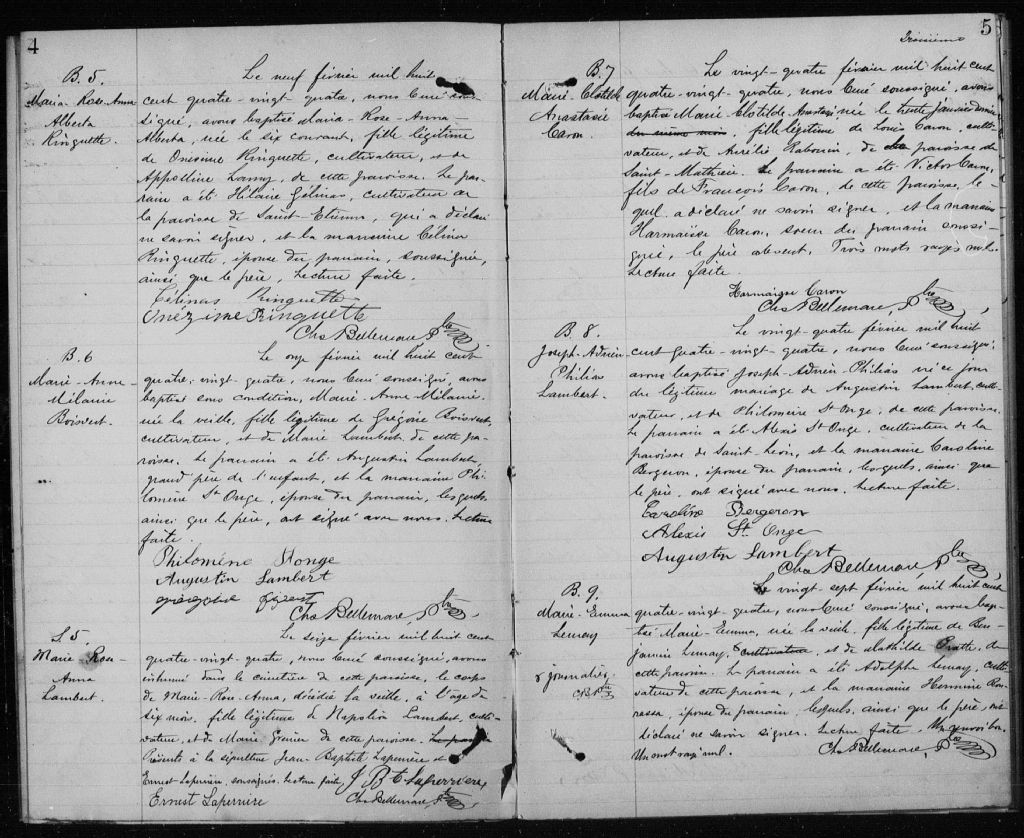 4
B. 5.
Maria-Rose-Anna
Alberta
Ringuette.
Le neuf février mil huit
cent quatre-vingt-quatre, nous Curé sous-
signé, avons baptisé Maria-Rose-Anna-
Alberta, née le six courant, fille légitime
de Onésime Ringuette, cultivateur, et de
Appolline Lamy, de cette paroisse. Le par-
rain a été Hilaire Gélinas, cultivateur de
la paroisse de Saint-Etienne, qui a déclaré
ne savoir signer, et la marraine Célina
Ringuette, épouse du parrain, soussignée,
ainsi que le père. Lecture faite.
Célinas Ringuette
Onézime Ringuette
Chs Bellemare, Ptre
B. 6
Marie-Anne
Mélanie
Boisvert.
Le onze février mil huit cent
quatre-vingt-quatre, nous Curé soussigné, avons
baptisé sous condition, Marie-Anne-Mélanie,
née la veille, fille légitime de Grégoire Boisvert,
cultivateur, et de Marie Lambert, de cette pa-
roisse. Le parrain a été Augustin Lambert,
grand'père de l'enfant, et la marraine Phi-
lomène St Onge, épouse du parrain, lesquels
ainsi que le père, ont signé avec nous. Lecture
faite.
Philomène Stonge
Augustin Lambert
Chs Bellemare, Ptre
S. 5.
Marie Rose-
Anna
Lambert.
Le seize février mil huit cent
quatre-vingt-quatre, nous Curé soussigné, avons
inhumé dans le cimetière de cette paroisse, le corps
de Marie-Rose-Anna, décédée la veille, à l'âge de
six mois, fille légitime de Napoléon Lambert, culti-
vateur, et de Marie Grenier de cette paroisse.
Présents à la sépulture Jean-Baptiste Laperrière et
Ernest Laperrière, soussignés. Lecture faite. J B E Laperrière
Ernest Laperrière Chs Bellemare Ptre
5
Troisième
B. 7
Marie-Clotilde
Anastasie
Caron.
Le vingt-quatre février mil huit cent
quatre-vingt-quatre, nous Curé soussigné, avons
baptisé Marie-Clotilde-Anastasie née le trente Janvier dernier
du même mois, fille légitime de Louis Caron, culti-
vateur, et de Aurélie Rabouin, de la paroisse de
Saint-Mathieu. Le parrain a été Victor Caron,
fils de François Caron, de cette paroisse, le-
quel a déclaré ne savoir signer, et la marraine
Harmaïse Caron, soeur du parrain soussi-
gnée, le père absent. Trois mots rayés nuls.
Lecture faite.
Harmaise Caron
Chs Bellemare, Ptre
B. 8.
Joseph-Adrien
Philias
Lambert.
Le vingt-quatre février mil huit
cent quatre-vingt-quatre, nous Curé soussigné,
avons baptisé Joseph-Adrien-Philias né ce jour
du légitime mariage de Augustin Lambert, culti-
vateur, et de Philomène St Onge, de cette paroisse.
Le parrain a été Alexis St Onge, cultivateur de la
paroisse de Saint-Léon, et la marraine Caroline
Bergeron, épouse du parrain, lesquels, ainsi que
le père, ont signé avec nous. Lecture faite.
Caroline Bergeron
Alexis St. Onge
Augustin Lambert
Chs Bellemare, Ptre
B. 9.
Marie-Emma
Lemay
x journalier
CB Ptre
Le vingt-sept février, mil huit cent
quatre-vingt-quatre, nous Curé soussigné, avons bap-
tisé Marie-Emma, née la veille, fille légitime de Ben-
jamin Lemay, x cultivateur, et de Mathilde Pratte, de
cette paroisse. Le parrain a été Adolphe Lemay, culti-
vateur de cette paroisse, et la marraine Hermine
épouse du parrain, lesquels, ainsi que le père, ont
déclaré ne savoir signer. Lecture faite. Un renvoi bon.
Un mot rayé nul. Chs Bellemare, Ptre